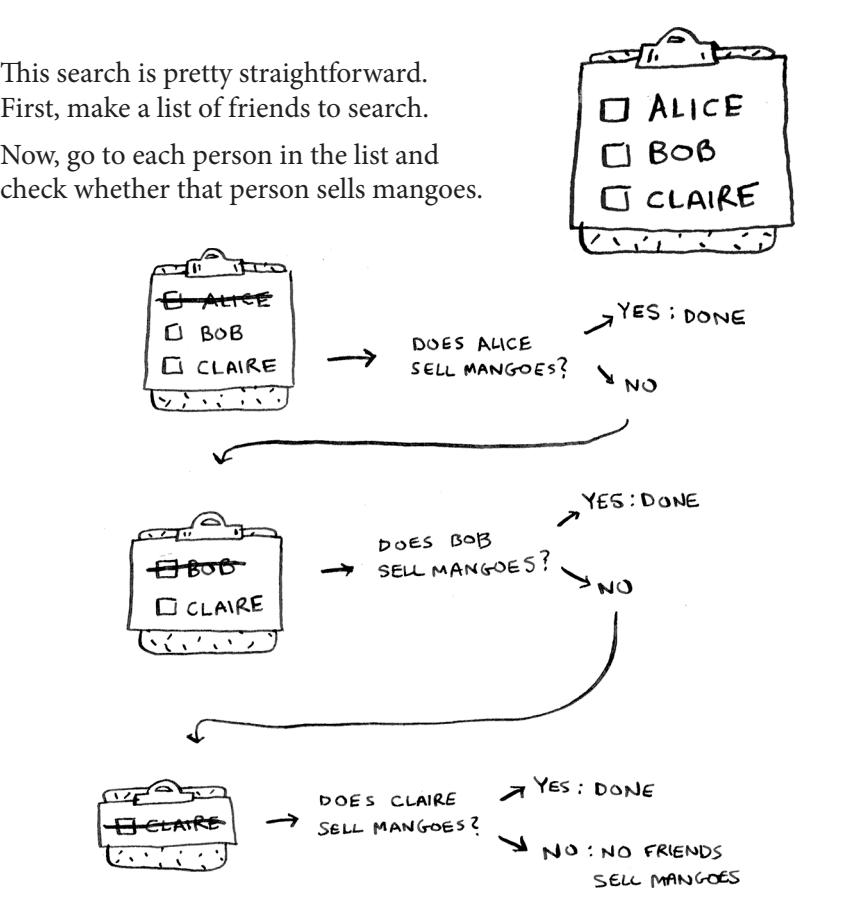 This search is pretty straightforward.
First, make a list of friends to search.
Now, go to each person in the list and
check whether that person sells mangoes.
ALICE
BOB
CLAIRE
ALICE
BOB
CLAIRE
DOES ALICE
SELL MANGOES?
YES : DONE
NO
BOB
CLAIRE
DOES BOB
SELL MANGOES?
YES : DONE
NO
CLAIRE
DOES CLAIRE
SELL MANGOES?
YES : DONE
NO : NO FRIENDS
SELL MANGOES